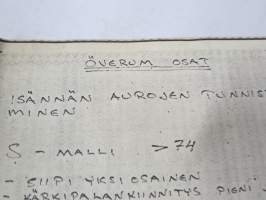 ÖVERUM OSAT
ISÄNNÄN AUROJEN TUNNIS
MINEN
S - MALLI > 74
- SIIPI YKSI OSAINEN
- KÄRKIPALANKIINNITYS PIENI